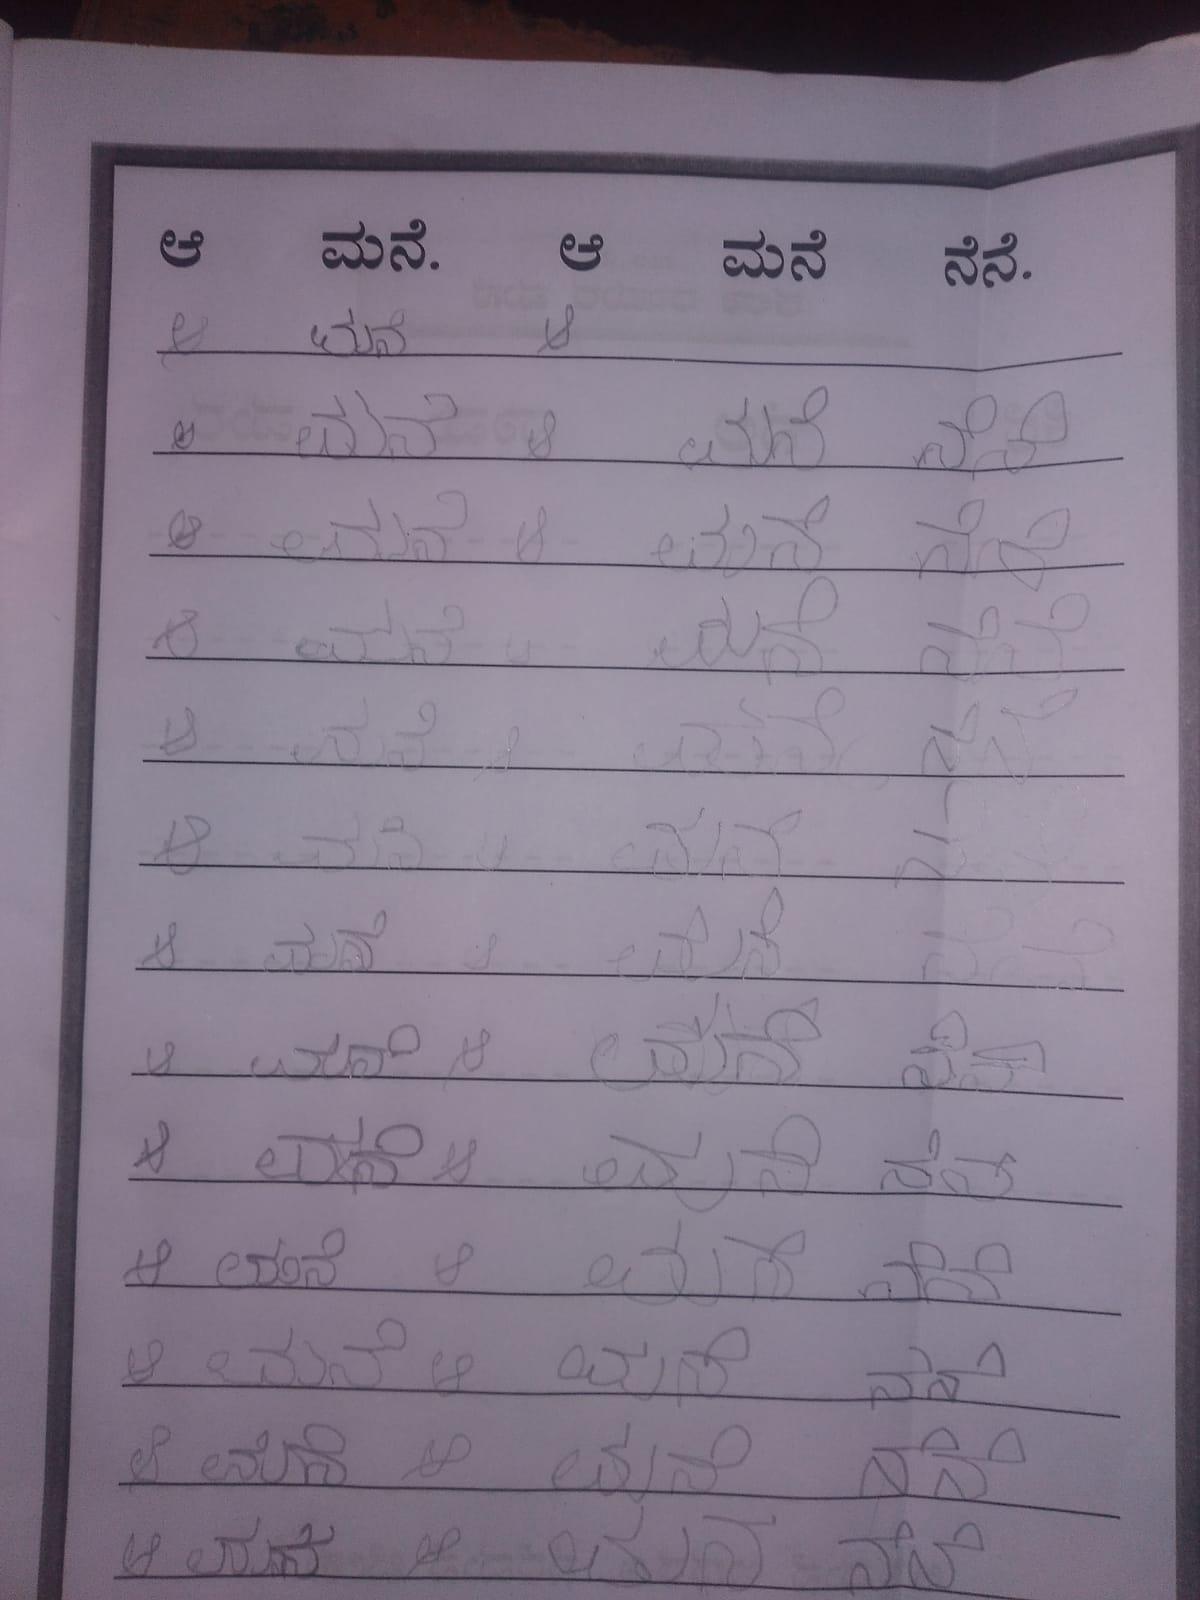 ಆ ಮನೆ. ಆ ಮನೆ ನೆನೆ.
ಆ ಮನೆ ಆ
ಆ ಮನೆ ಆ ಮನೆ ನೆನೆ
ಆ ಮನೆ ಆ ಮನೆ ನೆನೆ
ಆ ಮನೆ ಮನೆ ನೆನೆ
ಆ ಮನೆ ನೆನೆ
ಆ
ಆ ಮನೆ ಮನೆ
ಆ ಮನೆ ಆ ಮನೆ ನೆನೆ
ಆ ಮನೆ ಆ ಮನೆ ನೆನೆ
ಆ ಮನೆ ಆ ಮನೆ ನೆನೆ
ಆ ಮನೆ ಆ ಮನೆ ನೆನೆ
ಆ ಮನೆ ಆ ಮನೆ ನೆನೆ
ಆ ಮನೆ ಆ ಮನೆ ನೆನೆ